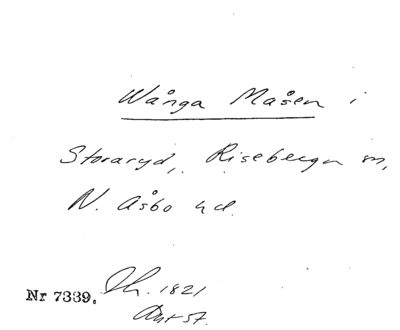 Wånga Måsen i
Storaryd, Riseberga sn,
N. Åsbo hd.
Nr 7339. Th. 1821
Ant st.